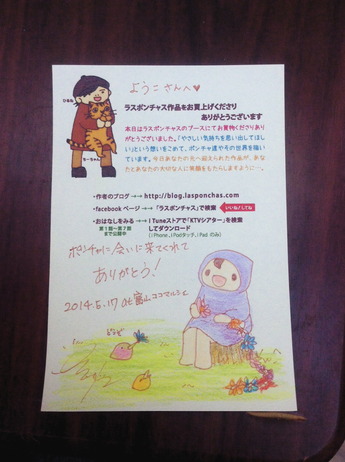 ようこさんへ♥
ひるね
ちーちゃん
ラスポンチャス作品をお買上げくださり
ありがとうございます
本日はラスポンチャスのブースにてお買物くださりあり
がとうございました。「やさしい気持ちを思い出してほし
い」という想いをこめて、ポンチャ達やその世界を描い
ています。今日あなたの元へ迎えられた作品が、あな
たとあなたの大切な人に笑顔をもたらしますように…。
・作者のブログ →→ http://blog.lasponchas.com
・facebook ページ →→「ラスポンチャス」で検索 いいね!してね
・おはなしをみる →→ I Tuneストアで「KTVシアター」を検索
第1話～第7話
まで公開中
してダウンロード
(iPhone、iPodタッチ、iPad のみ)
ポンチャに会いに来てくれて
ありがとう!
2014.5.17 at 富山ココマルシェ
どうぞ